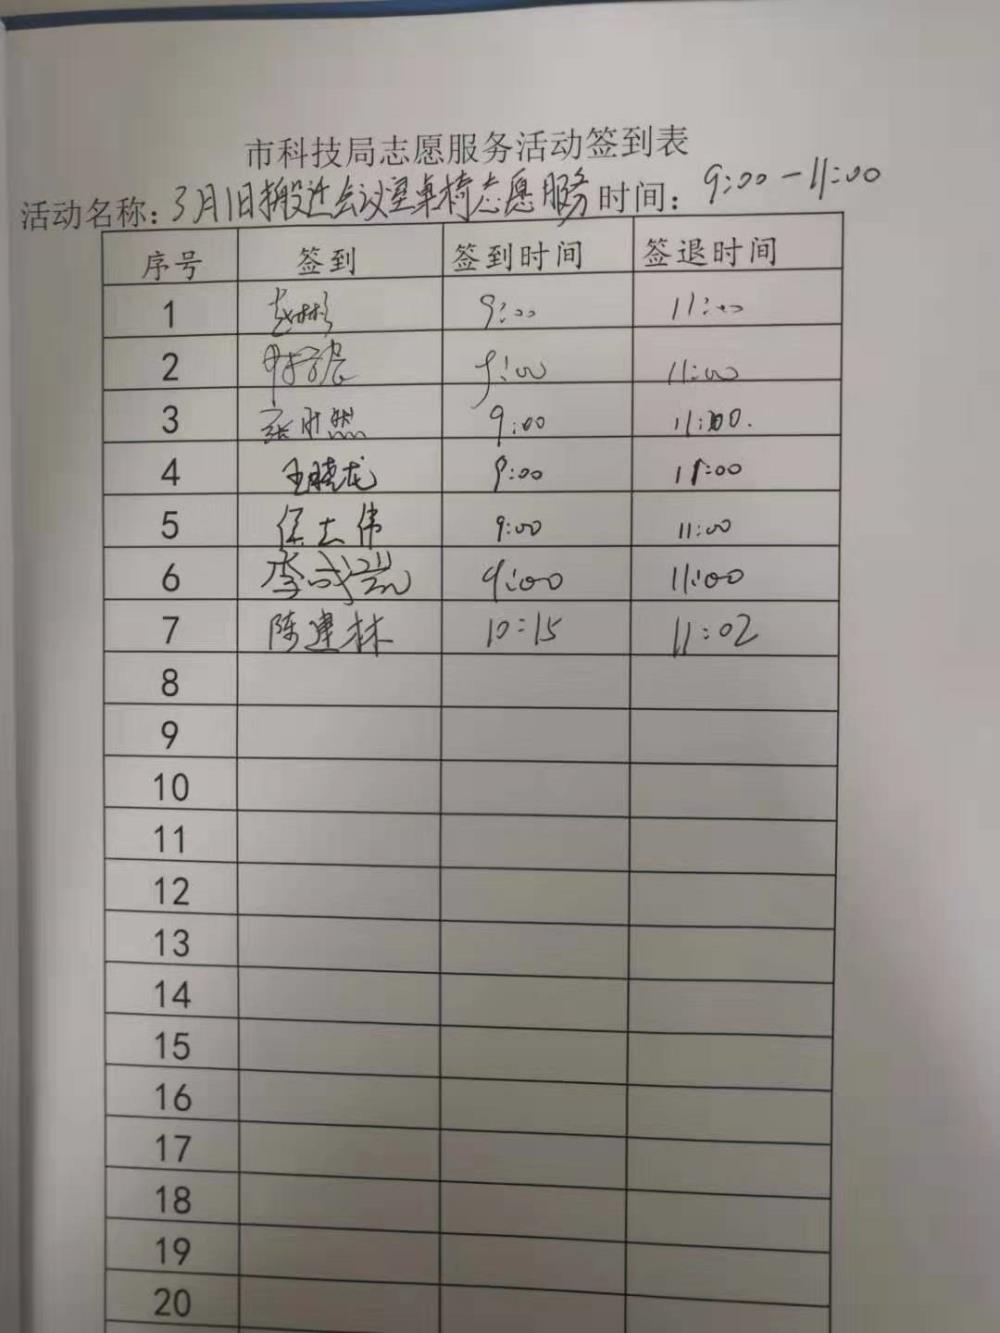 市科技局志愿服务活动签到表
活动名称：3月1日搬迁会议室桌椅志愿服务 时间：9:00-11:00
序号 签到 签到时间 签退时间
1 赵彬 9:00 11:00
2 9:00 11:00
3 9:00 11:00.
4 王晓龙 9:00 11:00
5 侯志伟 9:00 11:00
6 李成瑞 9:00 11:00
7 陈建林 10:15 11:02
8
9
10
11
12
13
14
15
16
17
18
19
20